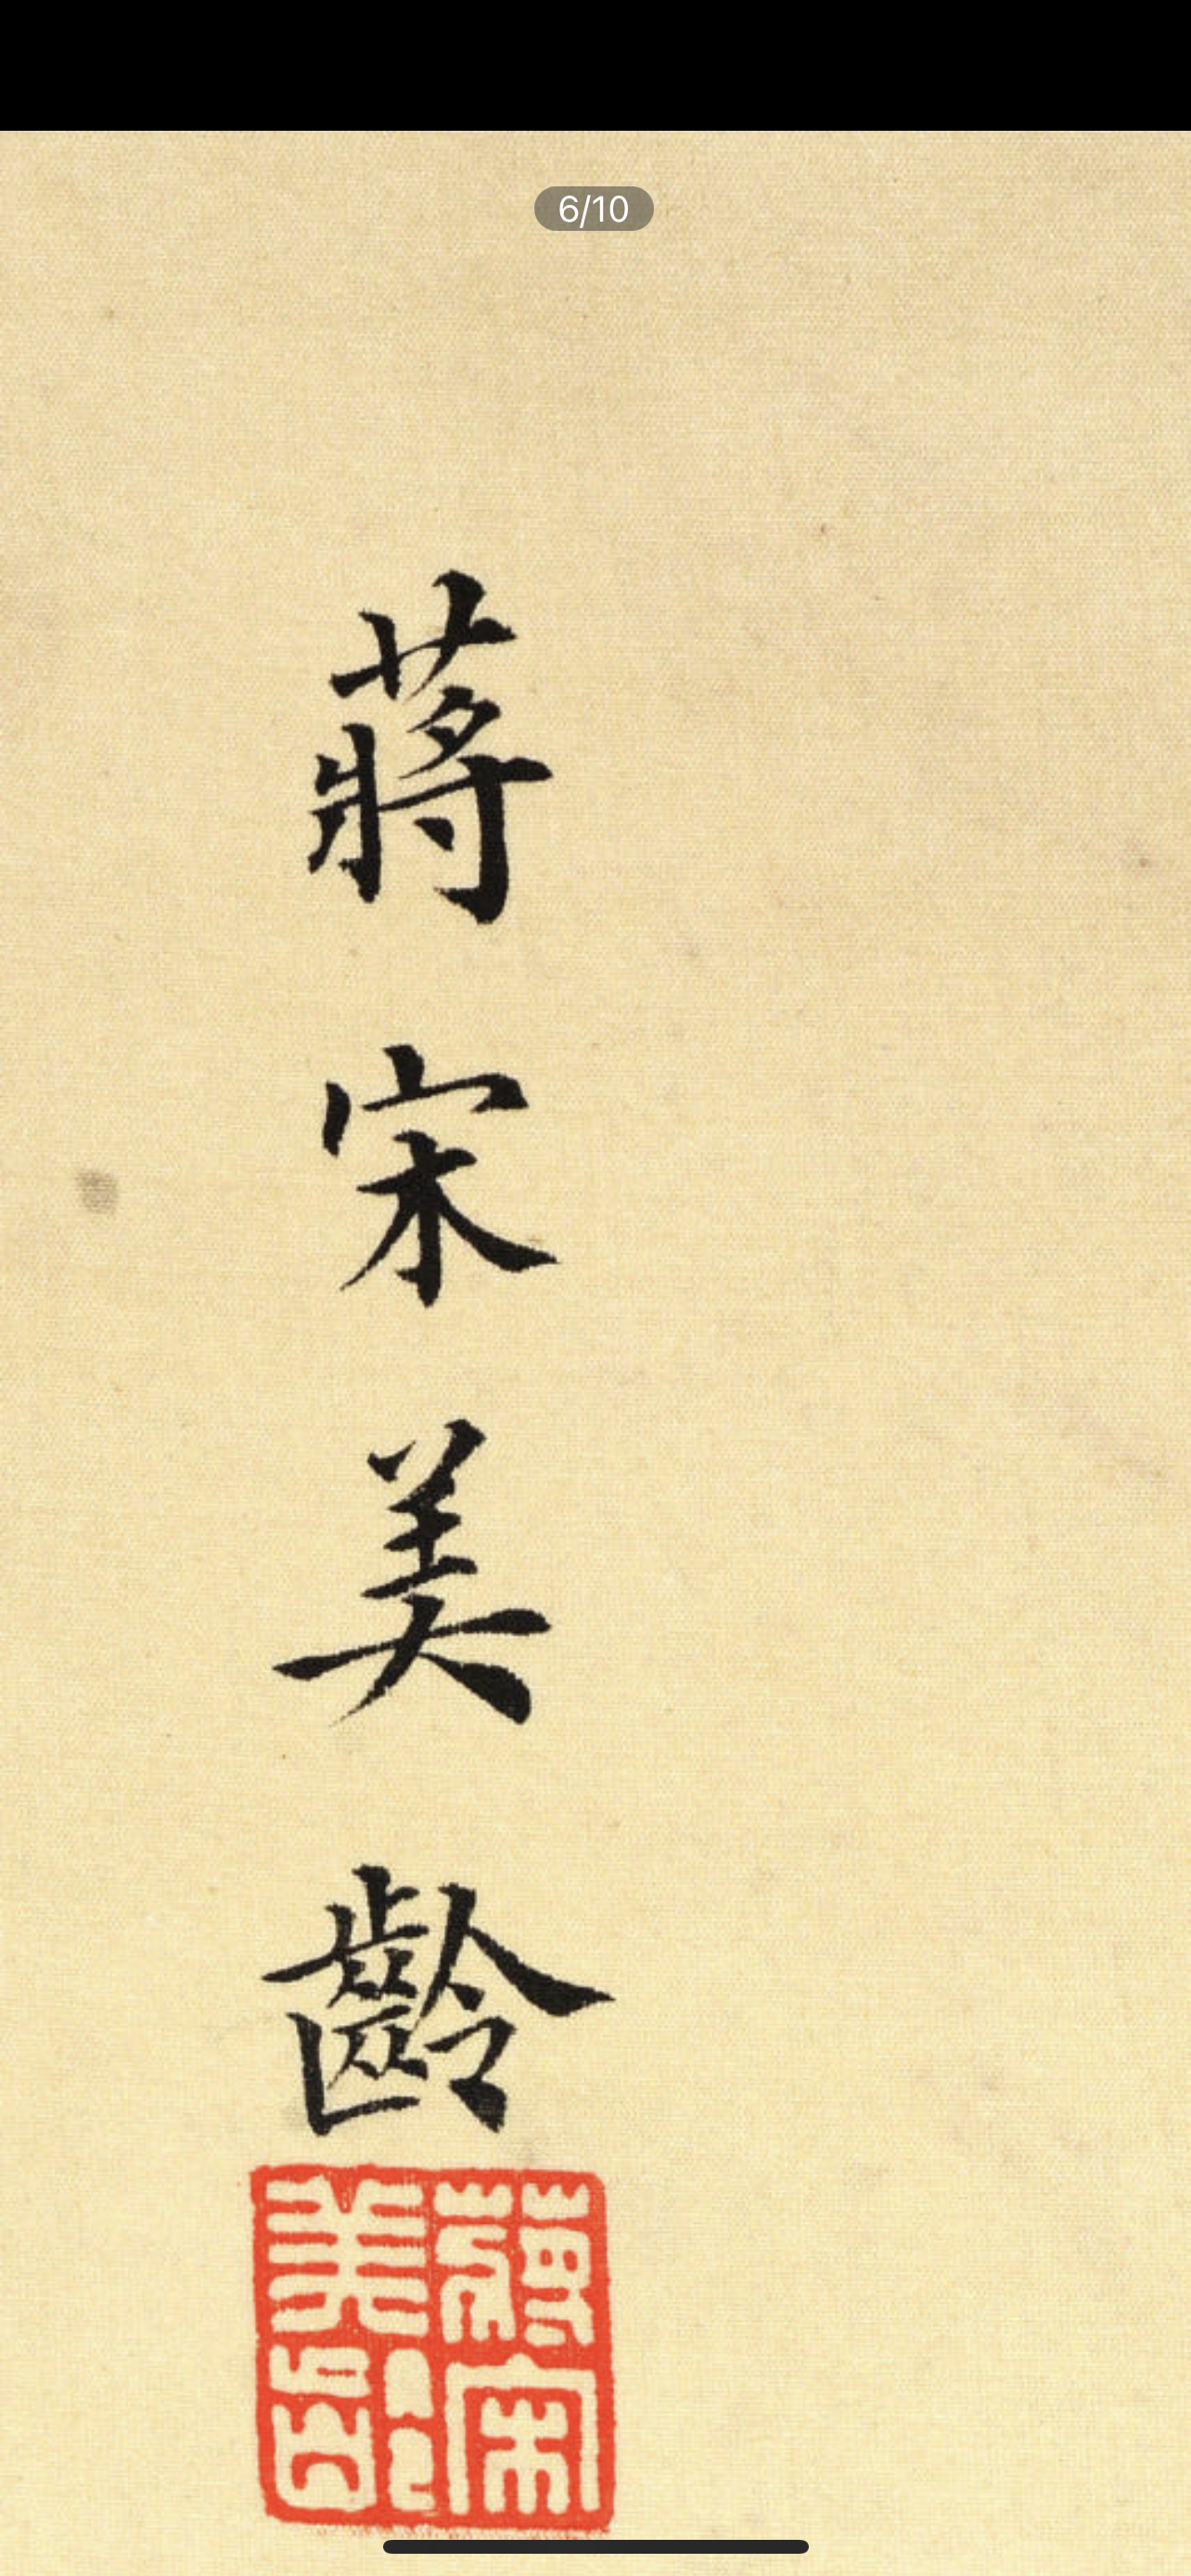 6/10
蔣宋美齡
蔣宋
美齡